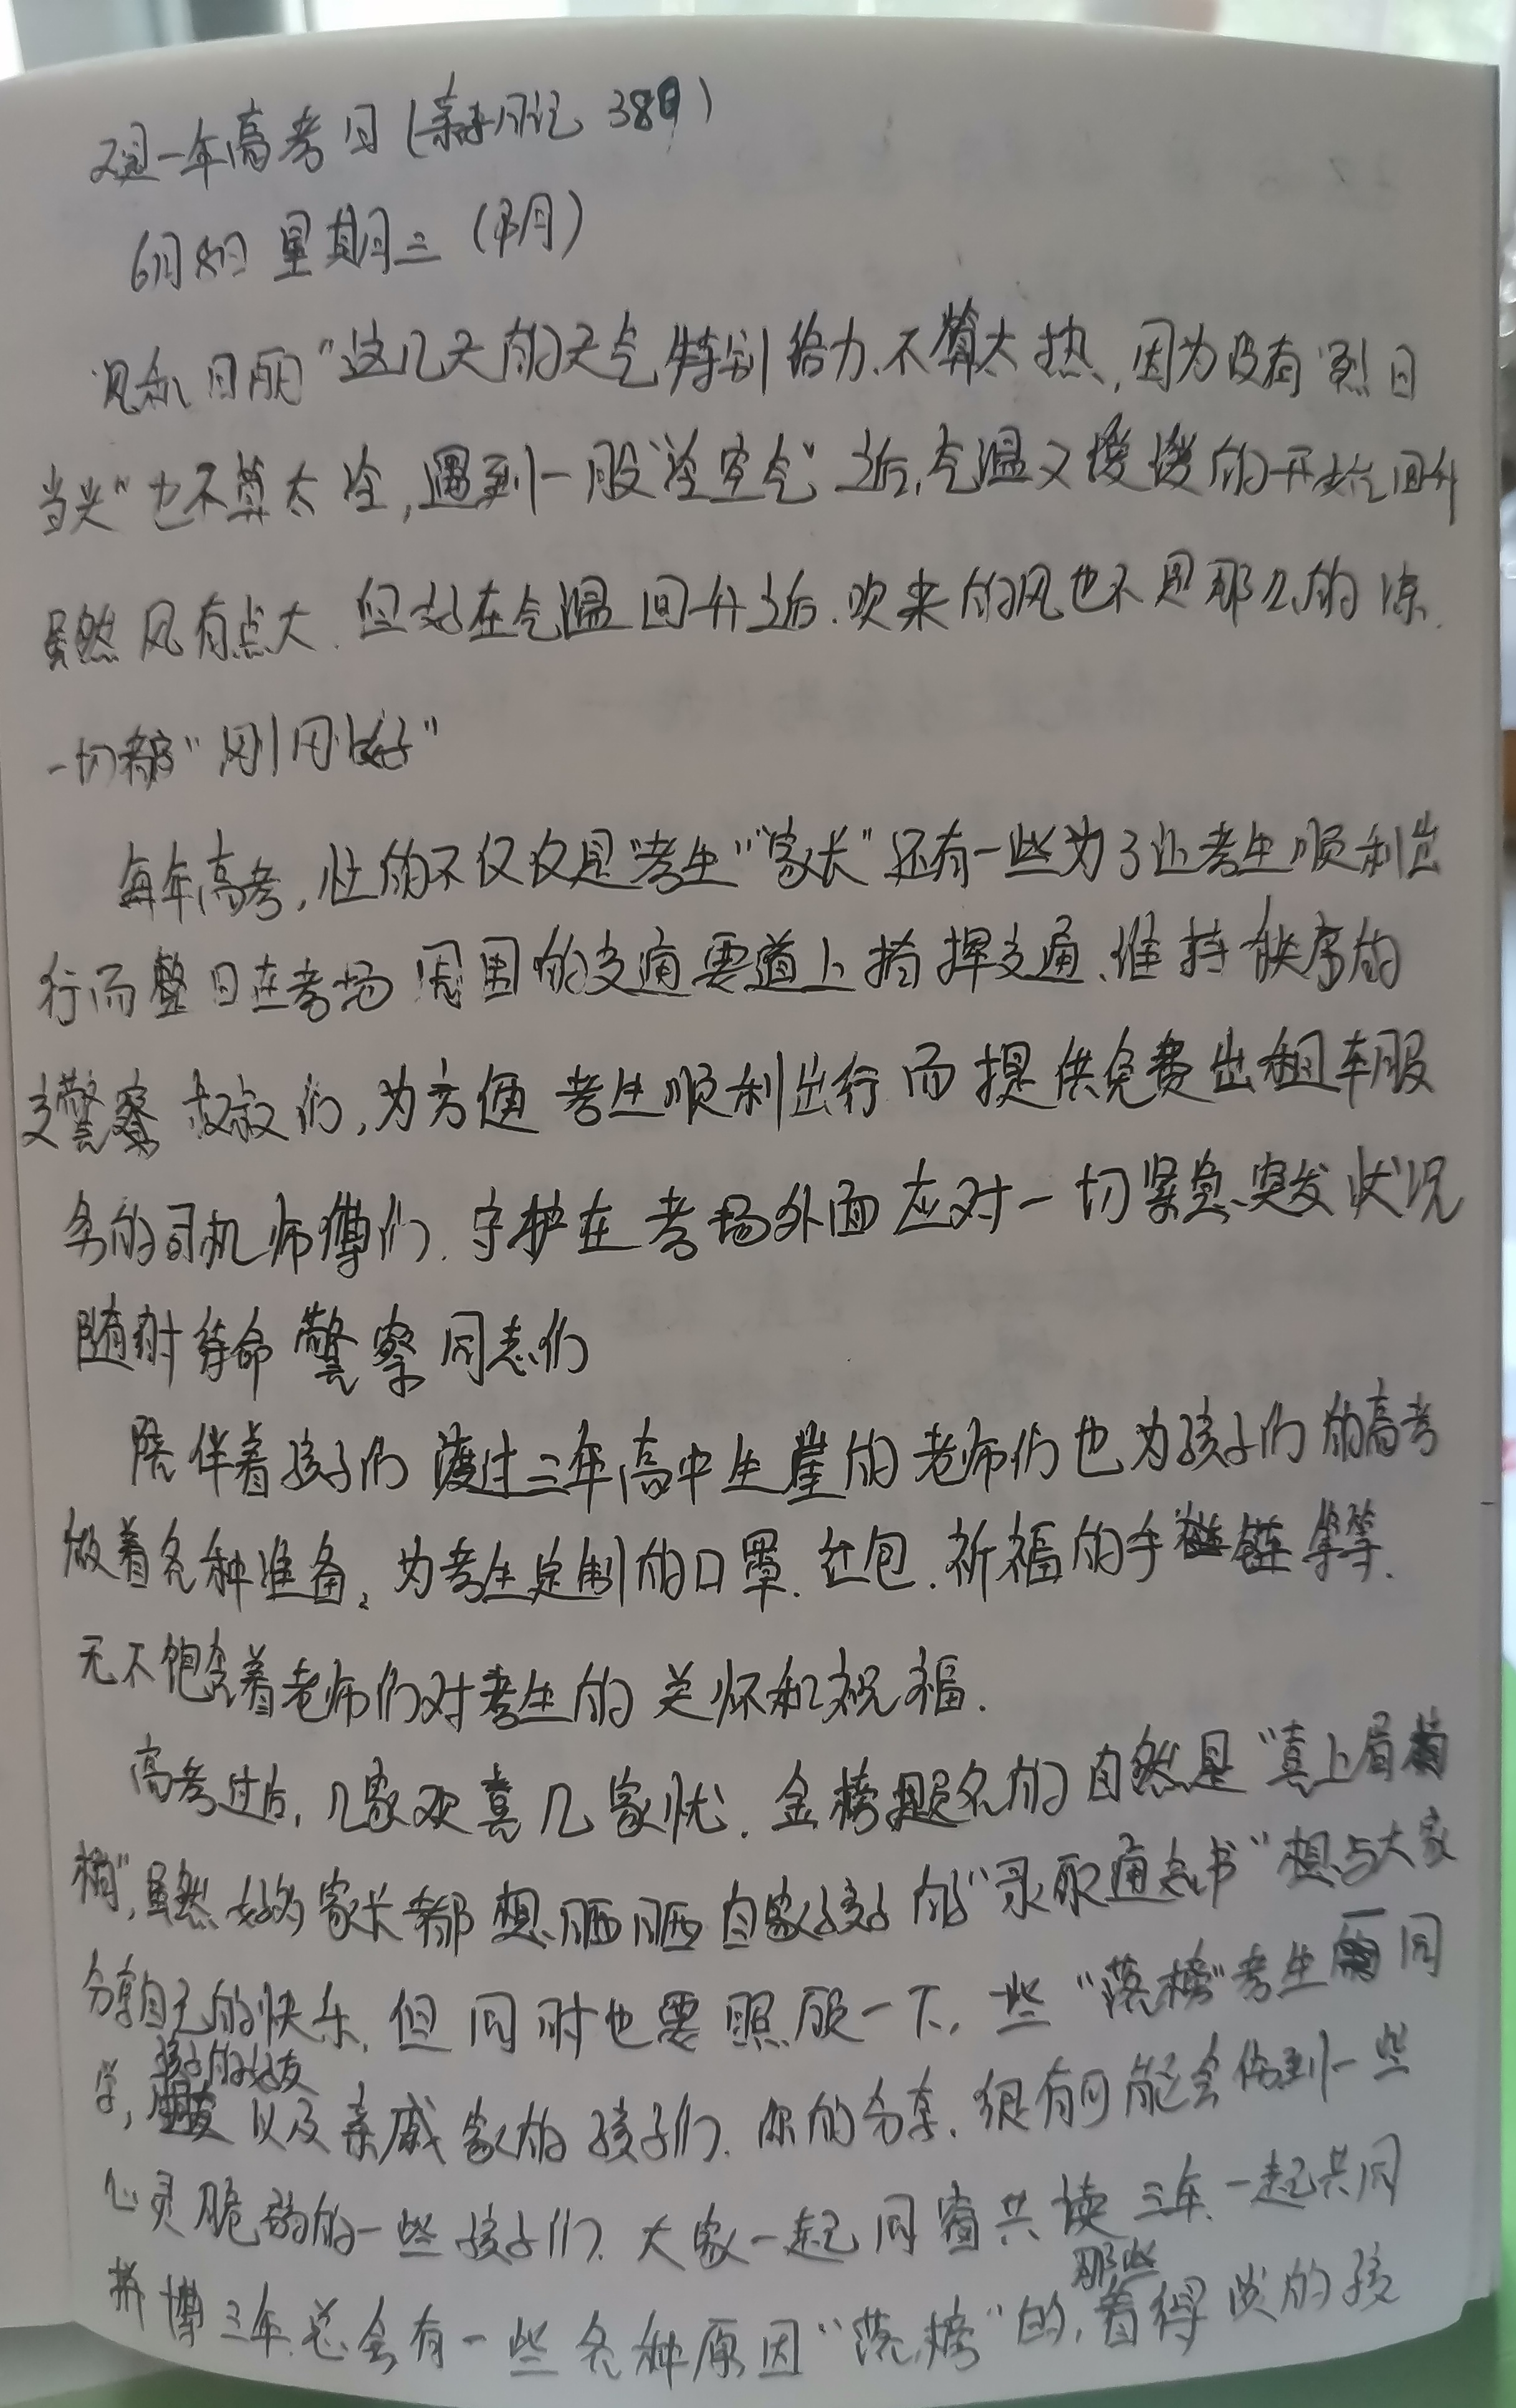 又是一年高考日(亲子日记 389)
6月8日 星期三 (阴)
风和日丽"这几天的天气特别给力、不算太热,因为没有"烈日
当头"也不算太冷,遇到一股"冷空气"之后,气温又慢慢的开始回升
虽然风有点大.但好在气温回升之后.吹来的风也不是那么的凉.
一切都"刚刚好"
每年高考,忙的不仅仅是"考生""家长"还有一些为了让考生顺利出
行而整日在考场周围的交通要道上指挥交通、维持秩序的
交警察叔叔们,为方便考生顺利出行而提供免费出租车服
务的司机师傅们.守护在考场外面应对一切紧急、突发状况
随时待命警察同志们
陪伴着孩子们渡过三年高中生崖的老师们也为孩子们的高考
做着各种准备,为考生定制的口罩.红包.祈福的手链等等.
无不饱含着老师们对考生的关怀和祝福.
高考过后,几家欢喜几家忧.金榜题名的自然是"喜上眉
梢",虽然好的家长都想晒晒自家孩子的"录取通知书"想与大家
分享自己的快乐,但同时也要照顾一下,一些"落榜"考生同
学,孩子的好友以及亲戚家的孩子们.你的分享.很有可能会伤到一些
心灵脆弱的一些孩子们.大家一起同窗共读三年.一起共同
拼搏三年.总会有一些各种原因"落榜"的,那些看得淡的孩